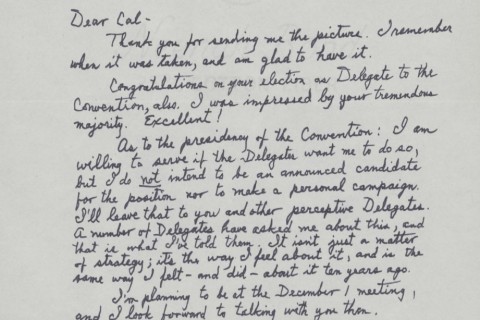 Dear Cal -
Thank you for sending me the picture. I remember
when it was taken, and am glad to have it.
Congratulations on your election as Delegate to the
Convention, also. I was impressed by your tremendous
majority. Excellent!
As to the presidency of the Convention: I am
willing to serve if the Delegates want me to do so,
but I do not intend to be an announced candidate
for the position nor to make a personal campaign.
I'll leave that to you and other perceptive Delegates.
A number of Delegates have asked me about this, and
that is what I've told them. It isn't just a matter
of strategy; it's the way I feel about it, and is the
same way I felt - and did - about it ten years ago.
I'm planning to be at the December 1 meeting,
and I look forward to talking with you then.